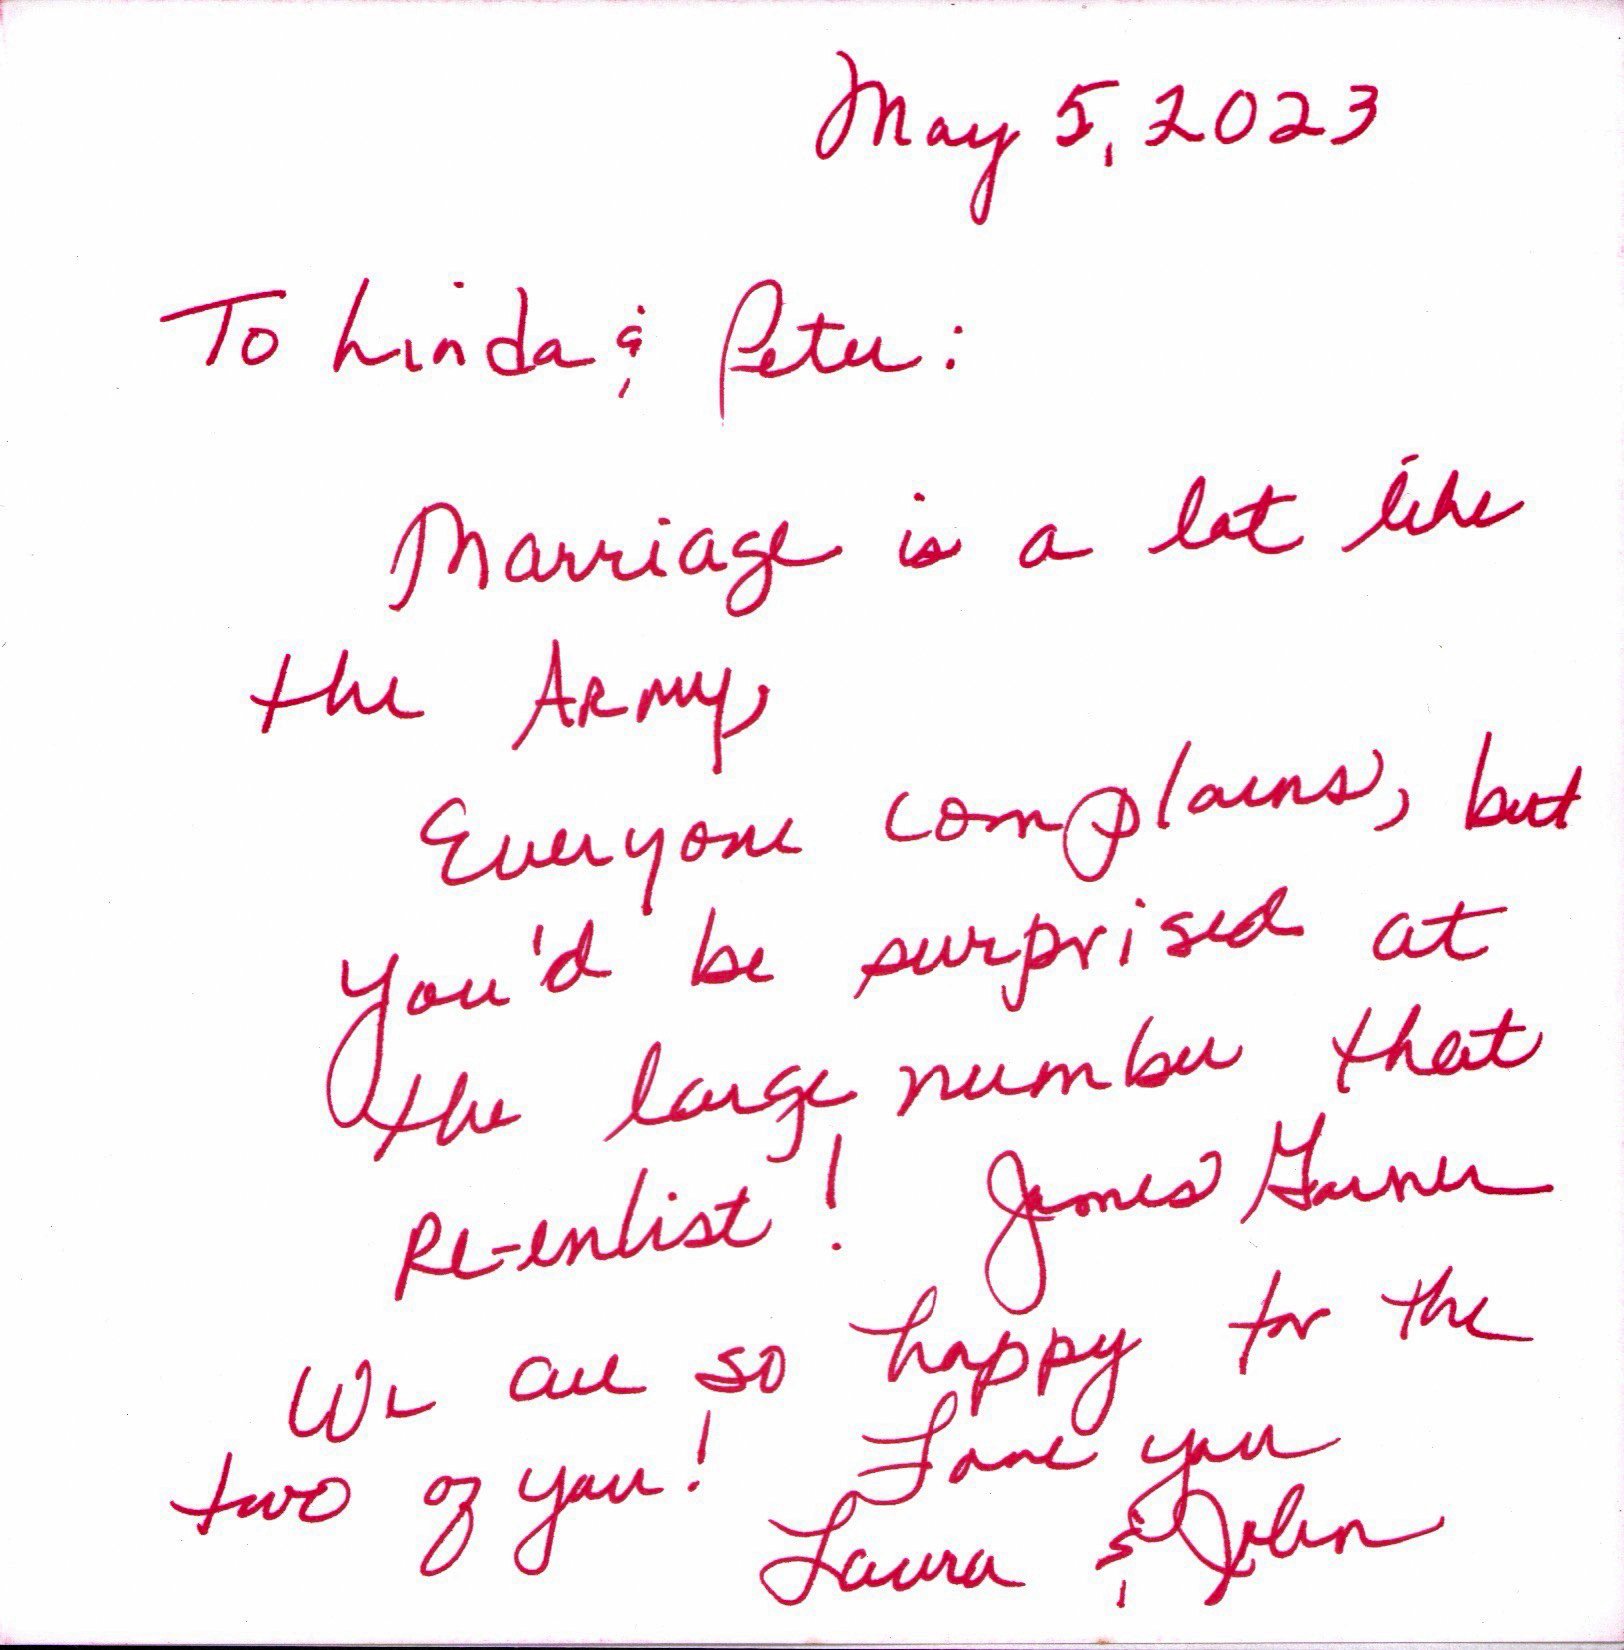 May 5, 2023
To Linda & Peter:
Marriage is a lot like
the Army,
Everyone complains, but
you'd be surprised at
the large number that
re-enlist! James Garner
We are so happy for the
two of you! Love you
Laura & John